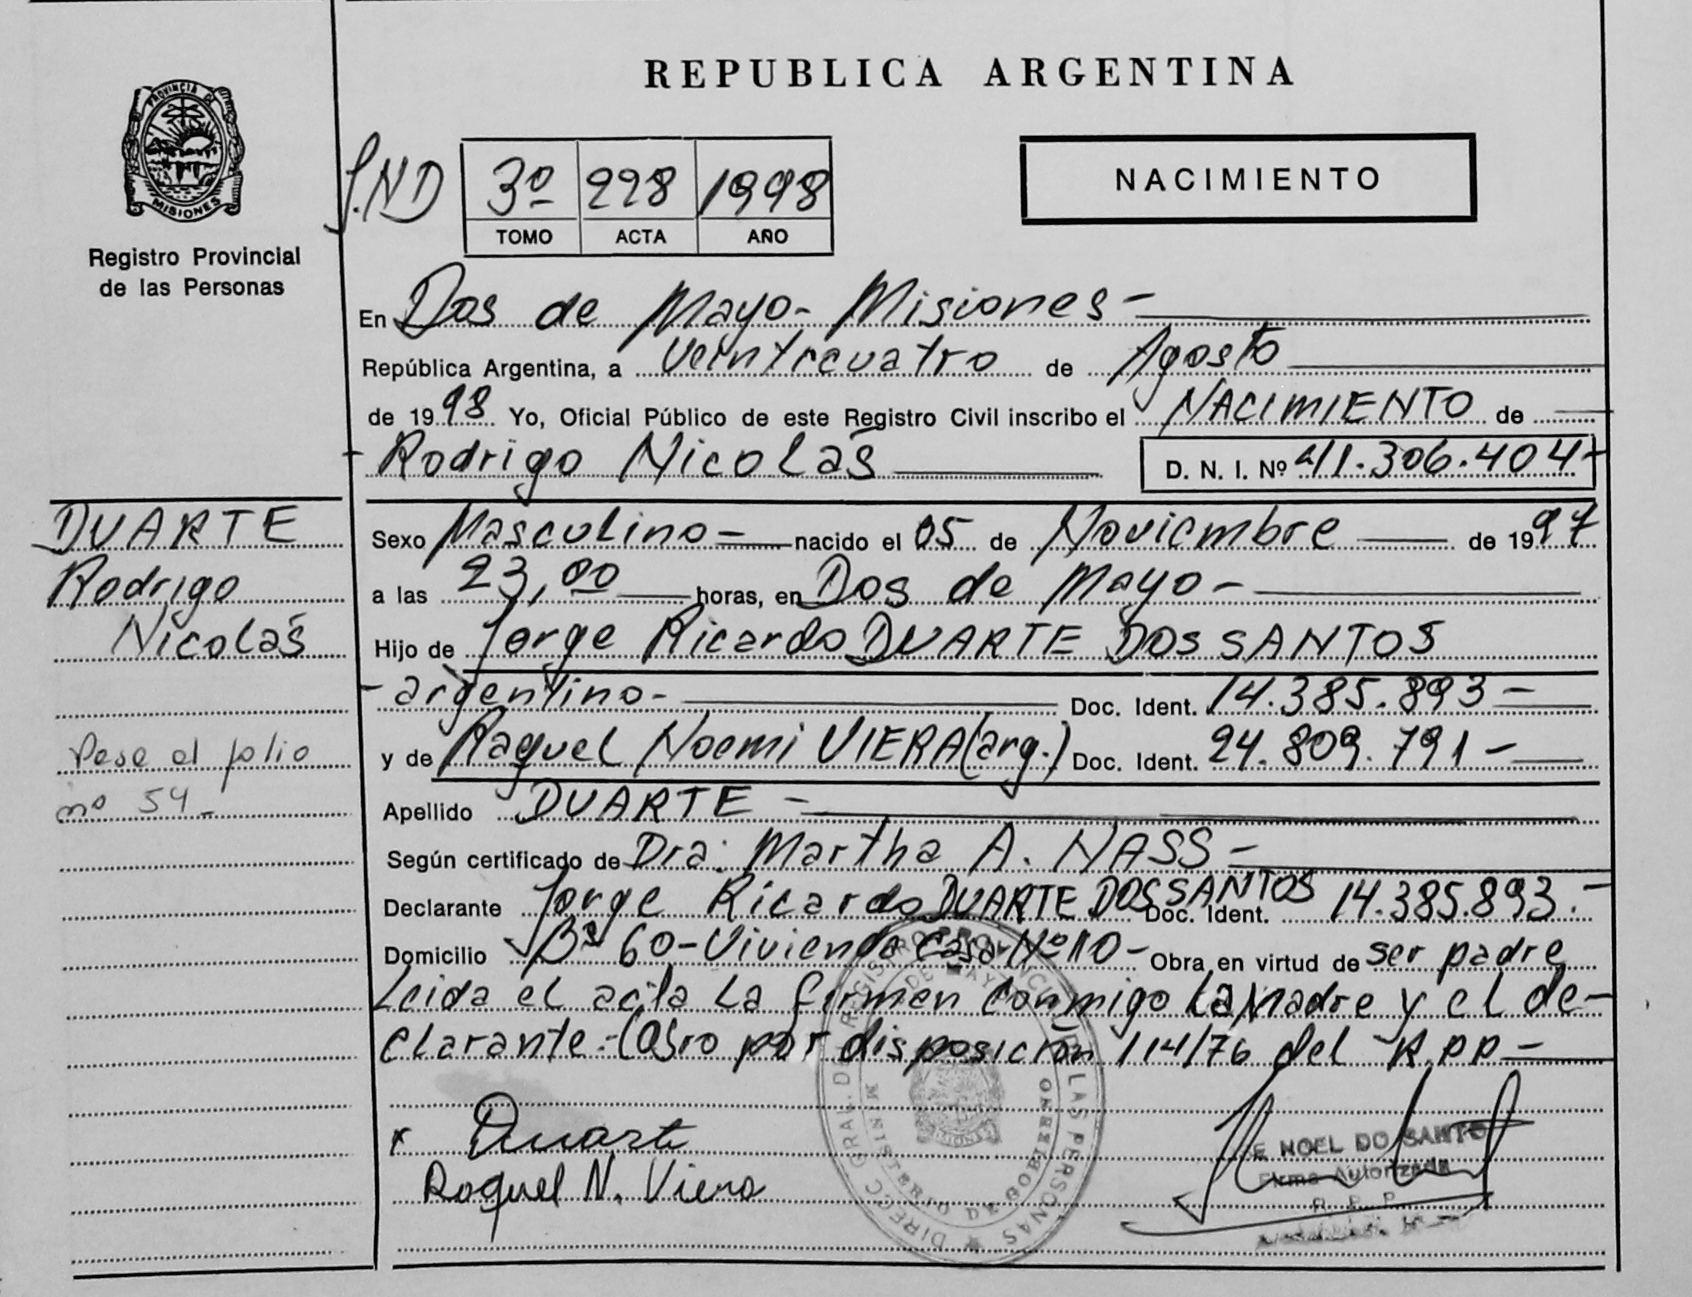 REPUBLICA ARGENTINA
PROVINCIA DE
MISIONES
Registro Provincial
de las Personas
3º 228 1998
TOMO ACTA AÑO
NACIMIENTO
En Dos de Mayo - Misiones -
República Argentina, a Veinticuatro de Agosto
de 1998 Yo, Oficial Público de este Registro Civil inscribo el NACIMIENTO de
- Rodrigo Nicolás
D. N. I. Nº 41.306.404-
DUARTE
Rodrigo
Nicolás
Pase al folio
nº 54 -
Sexo Masculino - nacido el 05 de Noviembre de 1997
a las 23,00 horas, en Dos de Mayo -
Hijo de Jorge Ricardo DUARTE DOS SANTOS
- argentino - Doc. Ident. 14.385.893 -
y de Raquel Noemi VIERA (arg.) Doc. Ident. 24.809.791 -
Apellido DUARTE -
Según certificado de Dra. Martha A. NASS -
Declarante Jorge Ricardo DUARTE DOS SANTOS Doc. Ident. 14.385.893.-
Domicilio Bº 60-Vivienda Casa Nº 10 - Obra en virtud de ser padre
Leida el acta la firman conmigo la Madre y el de-
clarante.- por disposición 114/76 del R.P.P -
Duarte
Raquel N. Viera
DIRECC. GRAL. DE REGISTRO PROVINCIAL DE LAS PERSONAS
MINISTERIO DE GOBIERNO
MISIONES
E NOEL DO SANTO
Firma Autorizada
R. P. P.